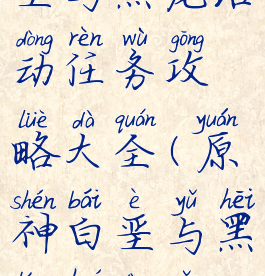 dòng rèn wù gōng
动任务攻
lüè dà quán yuán
略大全(原
shén bái è yǔ hēi
神白垩与黑